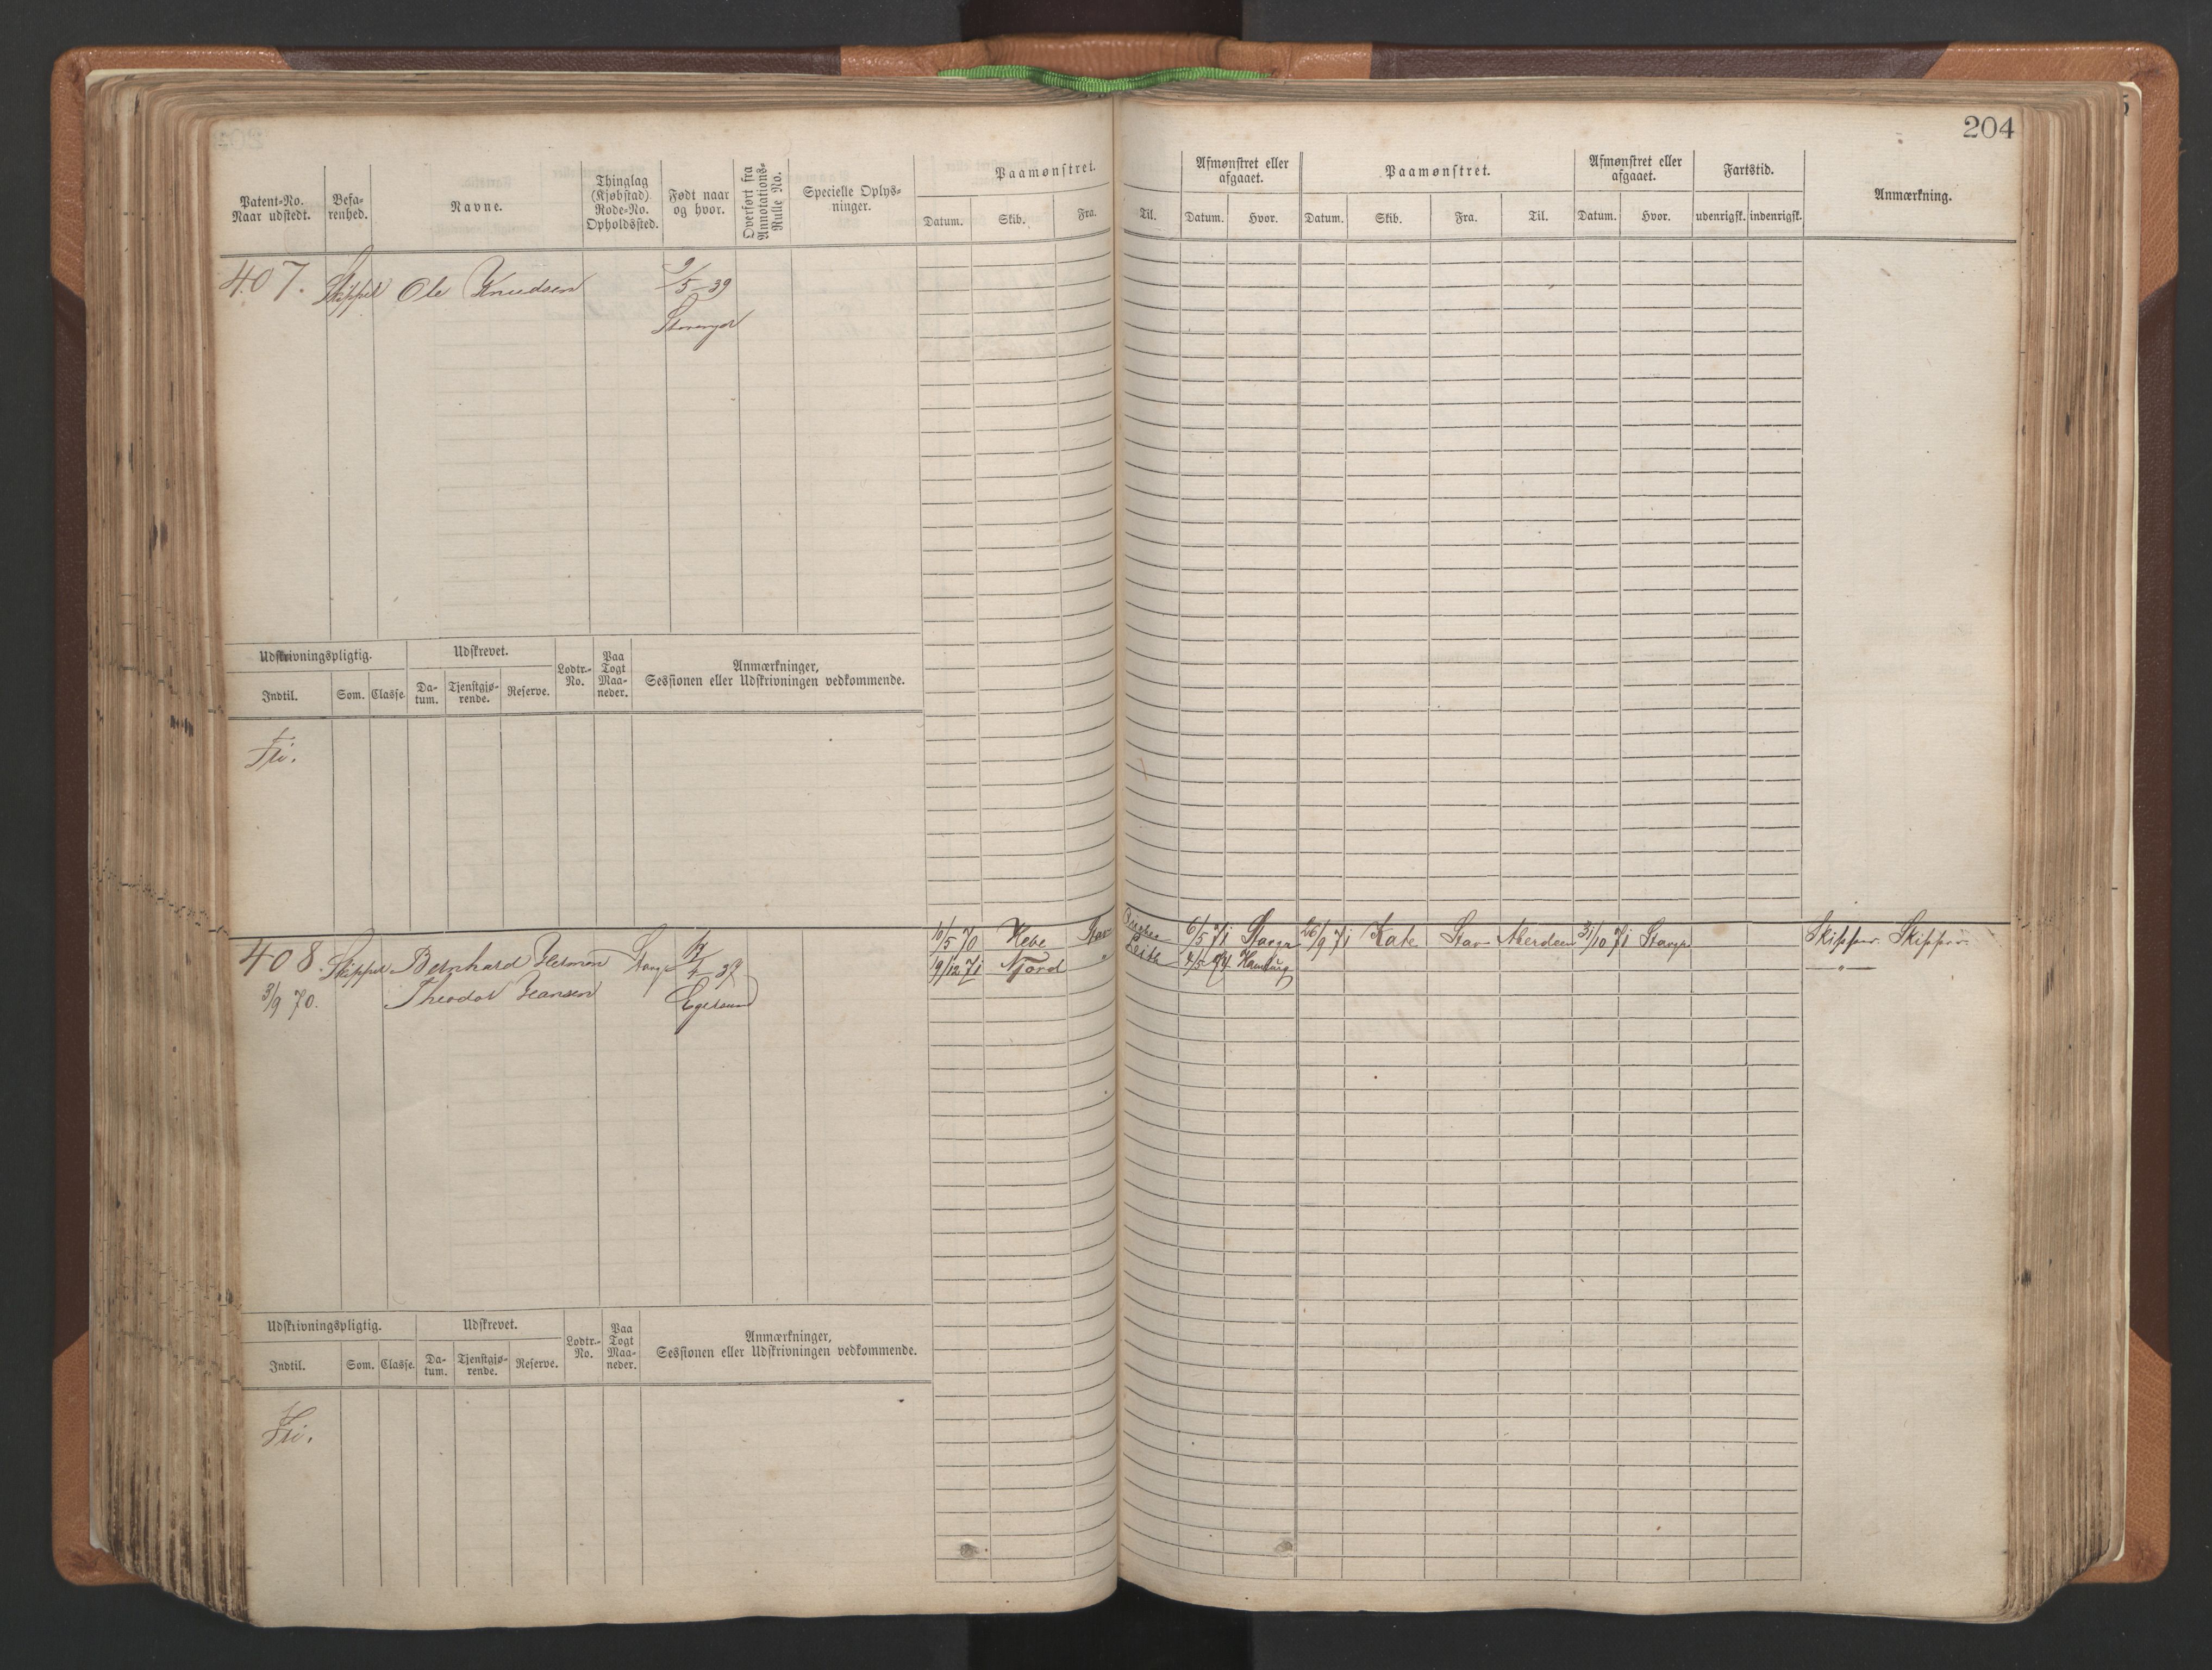 204
Patent-No. Naar udstedt.
Befa-renhed.
Navne.
Thinglag (Kjøbstad) Rode-No. Opholdssted.
Født naar og hvor.
Overført fra Annotations-Rulle No.
Specielle Oplys-ninger.
Paamønstret.
Datum. Skib. Fra. Til.
Afmønstret eller afgaaet.
Datum. Hvor.
Paamønstret.
Datum. Skib. Fra. Til.
Afmønstret eller afgaaet.
Datum. Hvor.
Fartstid.
udenrigsk. indenrigsk.
Anmærkning.
407. Skipper Ole Knudsen 9/5-39
Stavanger
Udskrivningspligtig. Udskrevet. Lodtr.-No. Paa Togt Maa-neder. Anmærkninger, Sessionen eller Udskrivningen vedkommende.
Indtil. Som. Classe. Da-tum. Tjenstgjø-rende. Reserve.
Fri.
408. Skipper Bernhard Herman Stavgr
3/9 70. Theodor Hansen Egersund
10/5 70 Hebe Stav 6/5 71 Stavgr 26/9 71 Kate Stav Aberdeen 31/10 71 Stavgr Skipper Skipper
19/12 71 Njord " Leith Hamburg — " —
Udskrivningspligtig. Udskrevet. Lodtr.-No. Paa Togt Maa-neder. Anmærkninger, Sessionen eller Udskrivningen vedkommende.
Indtil. Som. Classe. Da-tum. Tjenstgjø-rende. Reserve.
Fri.